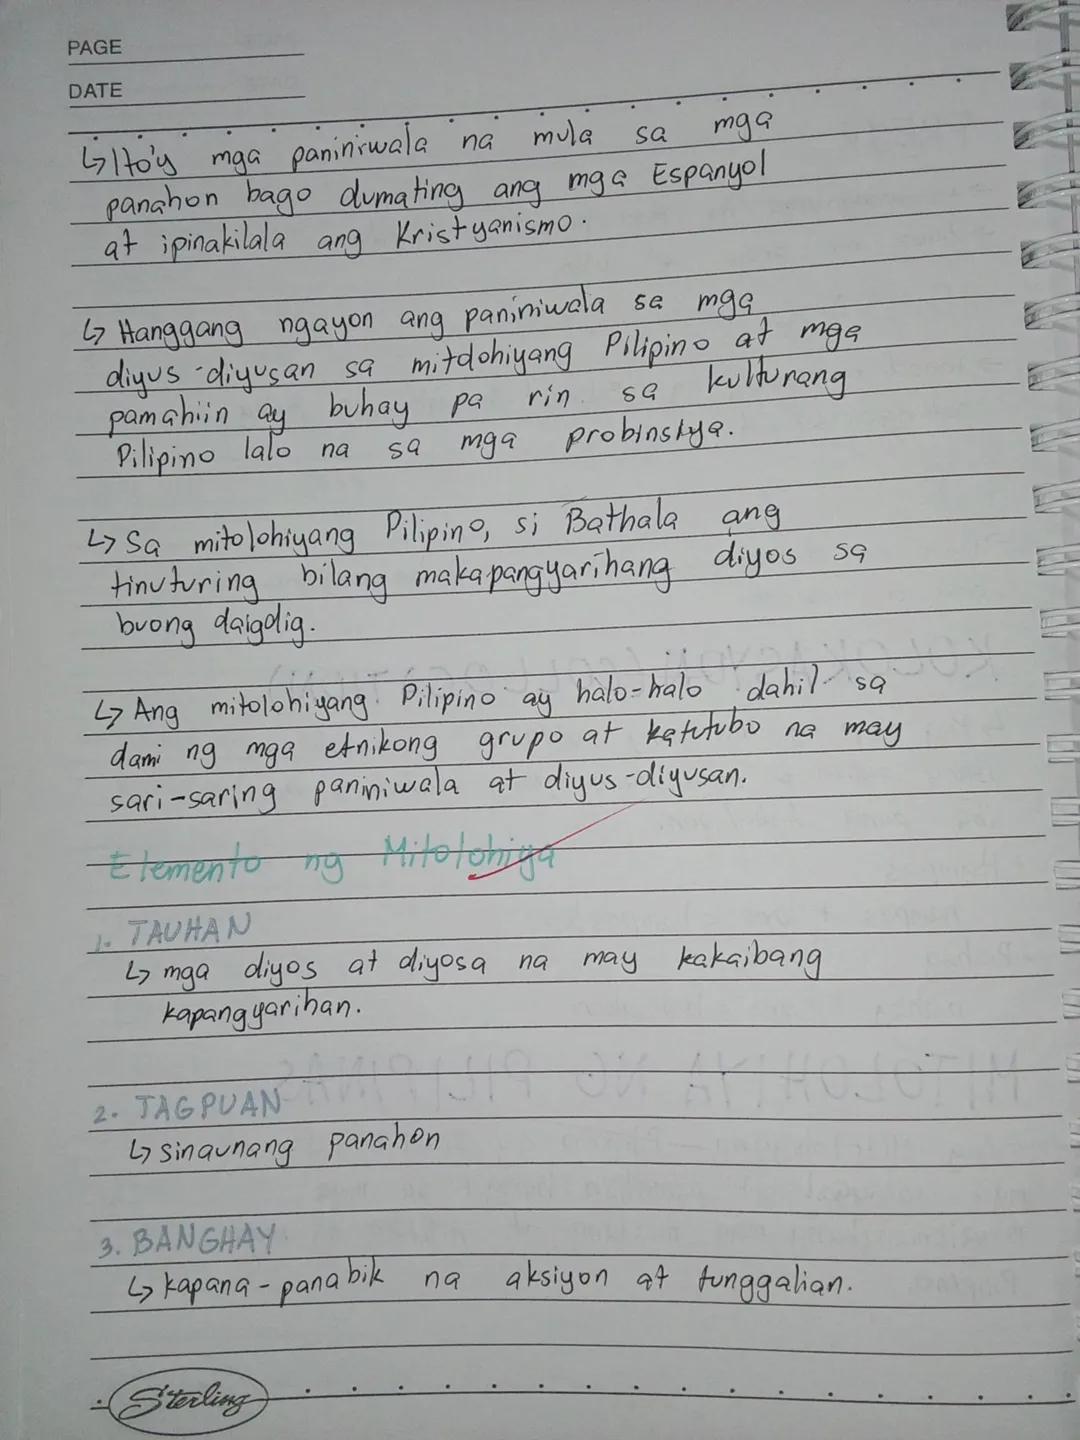 PAGE
DATE
↳ Ito'y mga paniniwala na mula sa mga
panahon bago dumating ang mga Espanyol
at ipinakilala ang Kristyanismo.
↳ Hanggang ngayon ang paniniwala sa mga
diyus-diyusan sa mitolohiyang Pilipino at mga
pamahiin ay buhay pa rin sa kulturang
Pilipino lalo na sa mga probinsya.
↳ Sa mitolohiyang Pilipino, si Bathala ang
tinuturing bilang makapangyarihang diyos sa
buong daigdig.
↳ Ang mitolohiyang Pilipino ay halo-halo dahil sa
dami ng mga etnikong grupo at katutubo na may
sari-saring paniniwala at diyus-diyusan.
Elemento ng Mitolohiya
1. TAUHAN
↳ mga diyos at diyosa na may kakaibang
kapangyarihan.
2. TAGPUAN
↳ sinaunang panahon
3. BANGHAY
↳ kapana-panabik na aksiyon at tunggalian.
Sterling